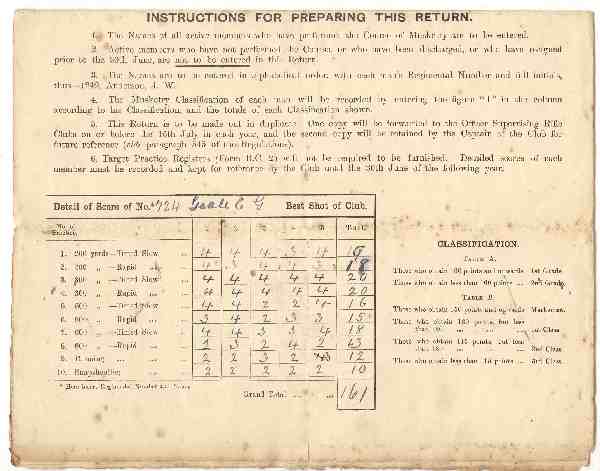 INSTRUCTIONS FOR PREPARING THIS RETURN.
1. The Names of all active members who have performed the Course of Musketry are to be entered.
2. Active members who have not performed the Course, or who have been discharged, or who have resigned
prior to the 30th June, are not to be entered in this Return.
3. The Names are to be entered in alphabetical order, with each man's Regimental Number and full initials,
thus—1792, Anderson, J. W.
4. The Musketry Classification of each man will be recorded by entering the figure "1" in the column
according to his Classification, and the totals of each Classification shown.
5. This Return is to be made out in duplicate. One copy will be forwarded to the Officer Supervising Rifle
Clubs on or before the 16th July in each year, and the second copy will be retained by the Captain of the Club for
future reference (vide paragraph 345 of the Regulations).
6. Target Practice Registers (Form R.C. 2) will not be required to be furnished. Detailed scores of each
member must be recorded and kept for reference by the Club until the 30th June of the following year.
Detail of Score of No.* 724 G Best Shot of Club.
No. of Practice. 1 2 3 4 5 Total
1. 200 yards—Timed Slow 4 4 4 3 4 19
2. 200 „ —Rapid 18
3. 300 „ —Timed Slow 4 4 4 4 4 20
4. 300 „ —Rapid 4 4 4 4 4 20
5. 500 „ —Timed Slow 4 4 2 2 4 16
6. 500 „ —Rapid 3 4 2 3 3 15
7. 600 „ —Timed Slow 4 4 3 3 4 18
8. 600 „ —Rapid 1 3 2 4 2 13
9. 2 2 3 2 3 12
10. Snapshooting 2 2 2 2 2 10
* Here insert Regimental Number and Name.
Grand Total 161
CLASSIFICATION.
TABLE A.
Those who obtain 60 points and upwards 1st Grade.
Those who obtain less than 60 points 2nd Grade.
TABLE B.
Those who obtain 150 points and upwards Marksmen.
Those who obtain points, but less
than 1st Class
Those who obtain points, but less
than 2nd Class
Those who obtain less than points 3rd Class